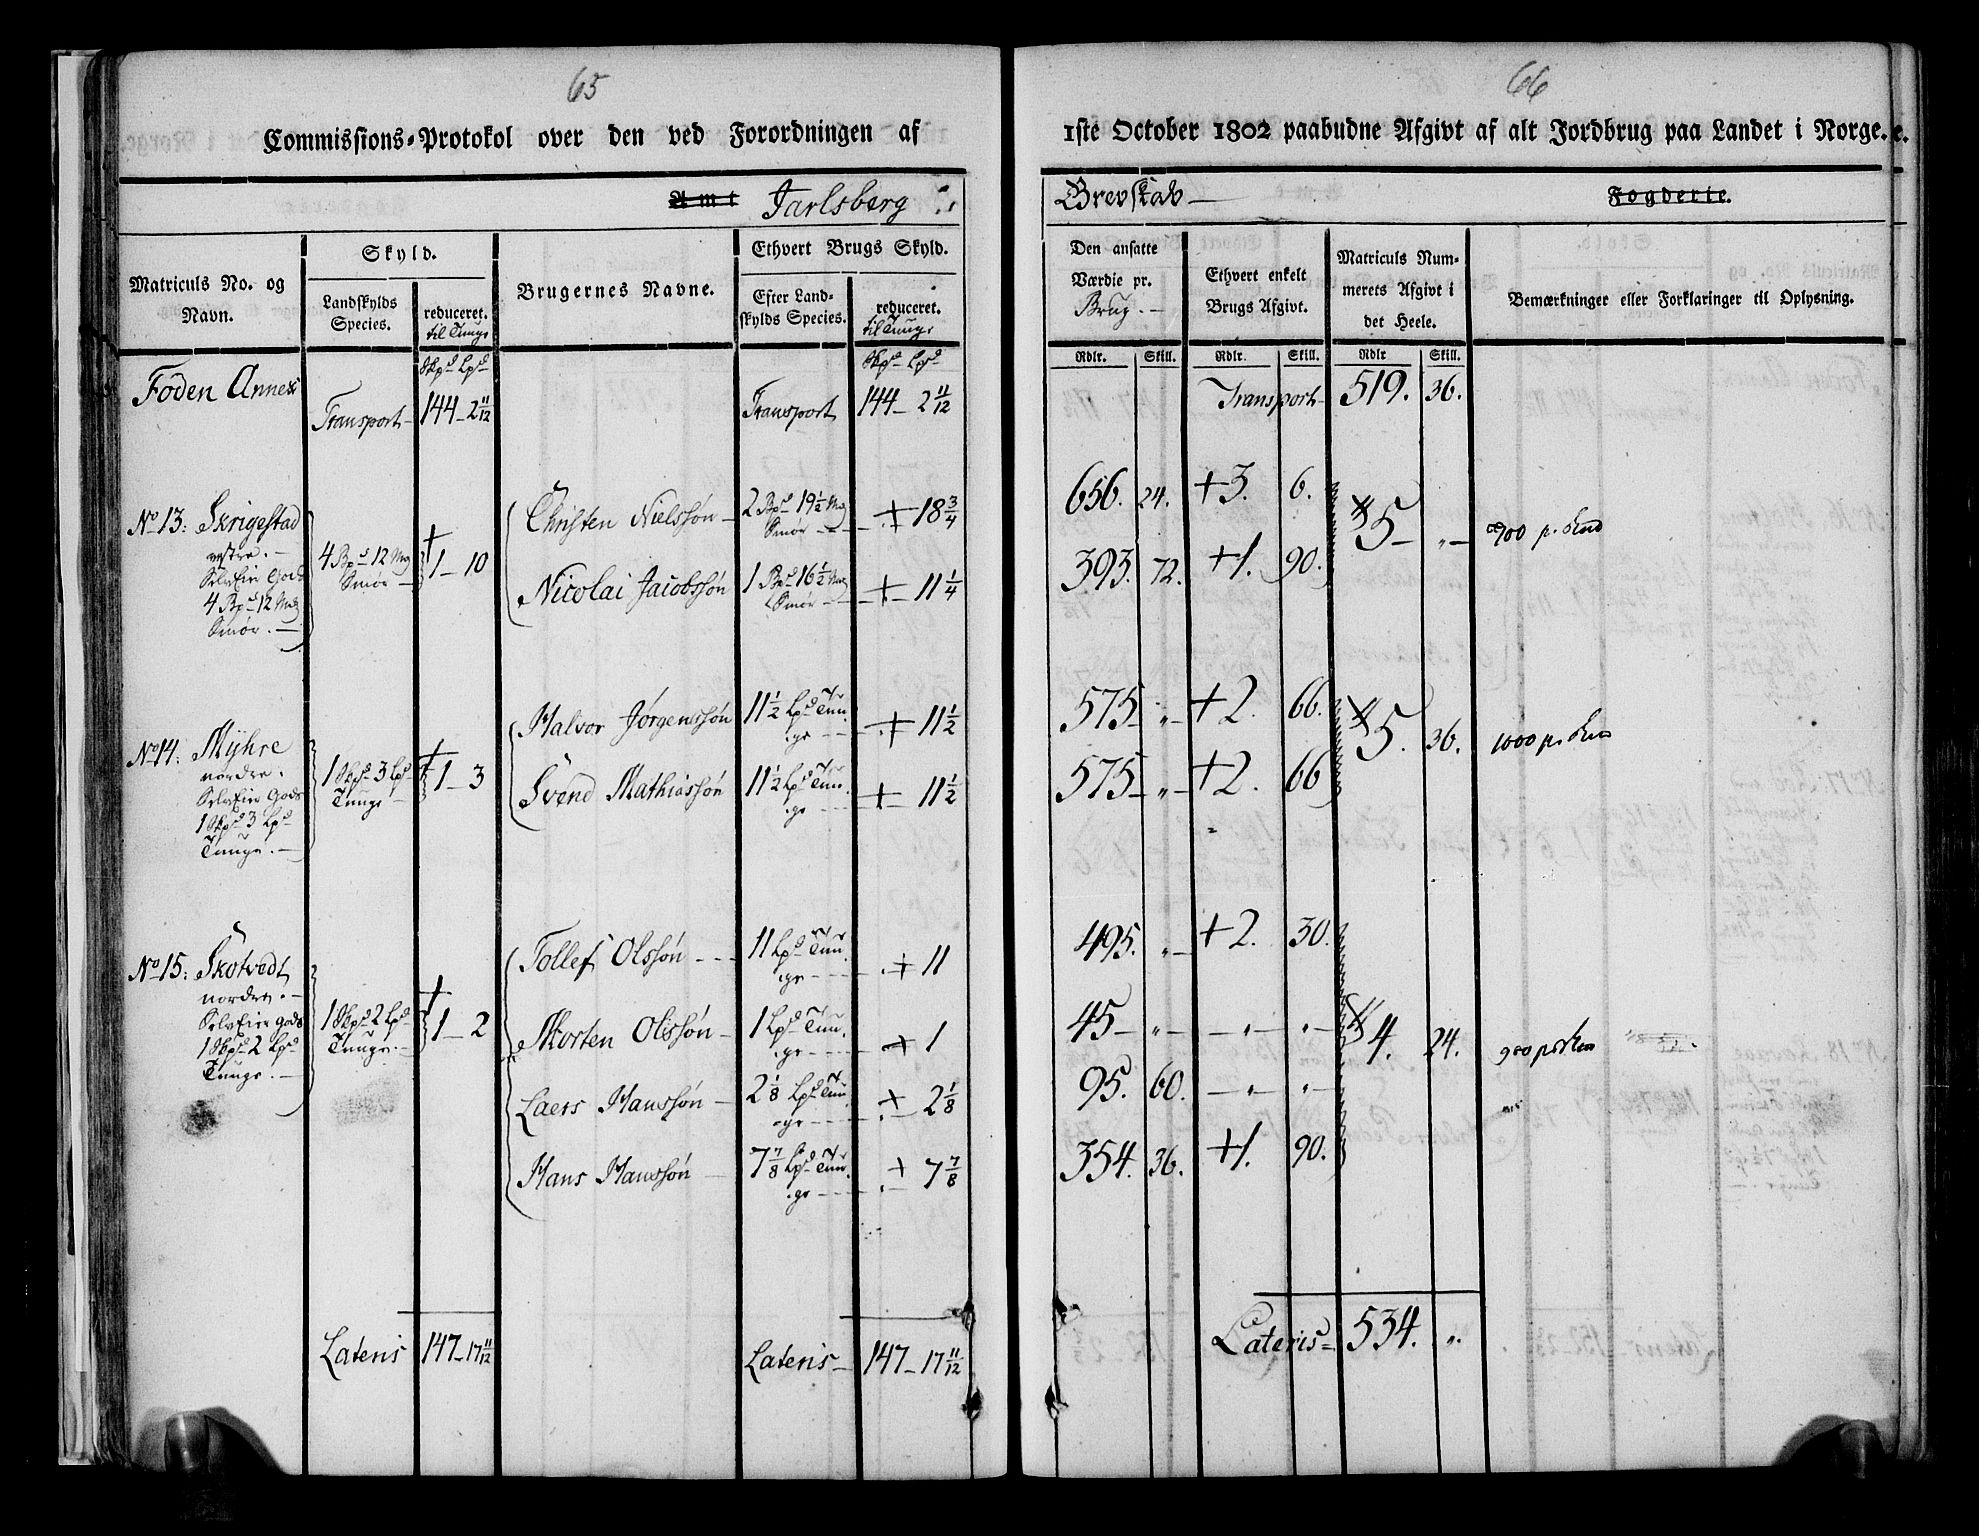 65
Commissions-Protokol over den ved Forordningen af
Amt Jarlsberg
Matriculs No. og Navn.
Skyld.
Landskylds Species.
reduceret. til Tunge
Brugernes Navne.
Ethvert Brugs Skyld.
Efter Landskylds Species.
reduceret. til Tunge
Foden Annex
Skpd Lpd
Skpd Lpd
Transport 144 - 2 11/12
Transport 144 - 2 11/12
No 13: Skrigestad
vestre. -
SelvEier Gods
4 Bpd 12 Mrg
Smør. -
4 Bpd 12 Mrg
Smør -
+ 1 - 10
Christen Nielssøn - 2 Bpd 19 1/2 Mrg Smør - + 18 3/4
Nicolai Jacobssøn 1 Bpd 16 1/2 Mrg Smør - + 11 1/4
No 14: Myhre
nordre.
SelvEier Gods
1 Skpd 3 Lpd
Tunge. -
1 Skpd 3 Lpd
Tunge -
+ 1 - 3
Halvor Jørgenssøn 11 1/2 Lpd Tunge - + 11 1/2
Svend Mathiassøn 11 1/2 Lpd Tunge - + 11 1/2
No 15: Skotvedt
nordre. -
SelvEier Gods
1 Skpd 2 Lpd
Tunge. -
1 Skpd 2 Lpd
Tunge. -
+ 1 - 2
Tollef Olssøn - 11 Lpd Tunge - + 11
Morten Olssøn - 1 Lpd Tunge - + 1
Laers Hanssøn - 2 1/8 Lpd Tunge - + 2 1/8
Hans Hanssøn - 7 7/8 Lpd Tunge - + 7 7/8
Lateris 147 - 17 11/12
Lateris - 147 - 17 11/12
66
1ste October 1802 paabudne Afgivt af alt Jordbrug paa Landet i Norge.
Grevskab - Fogderie.
Den ansatte Værdie pr. Brug. -
Ethvert enkelt Brugs Afgivt.
Matriculs Nummerets Afgivt i det Heele.
Bemærkninger eller Forklaringer til Oplysning.
Rdlr. Skill. Rdlr. Skill. Rdlr Skill.
Transport - 519. 36.
656. 24. + 3. 6.
5 - " -
900
393. 72. + 1. 90.
575 - " - + 2. 66.
5. 36.
1000
575 - " - + 2. 66
495. " - + 2. 30.
45 - " - - " - " -
4. 24.
900
95. 60. - " - " -
354. 36. + 1. 90.
Lateris - 534. ".